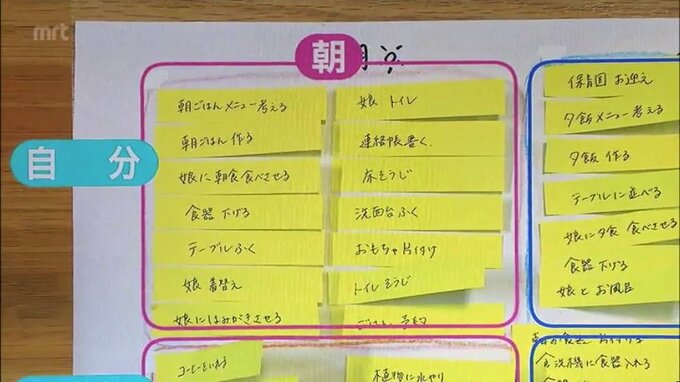 mrt
朝
自分
朝ごはんメニュー考える
朝ごはん 作る
娘に朝食食べさせる
食器 下げる
テーブルふく
娘 着替え
娘にはみがきさせる
娘 トイレ
連絡帳書く
床そうじ
洗面台ふく
おもちゃ片付け
トイレそうじ
予約
保育園 お迎え
夕飯メニュー考える
夕飯 作る
テーブルに並べる
娘に夕食 食べさせる
食器 下げる
娘とお風呂
コーヒーいれる
植物に水やり
食洗機に食器入れる